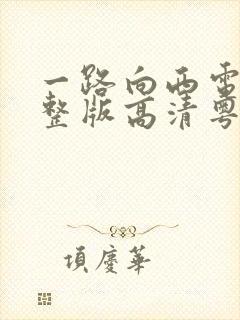 一路向西電
整版高清粵
項慶華